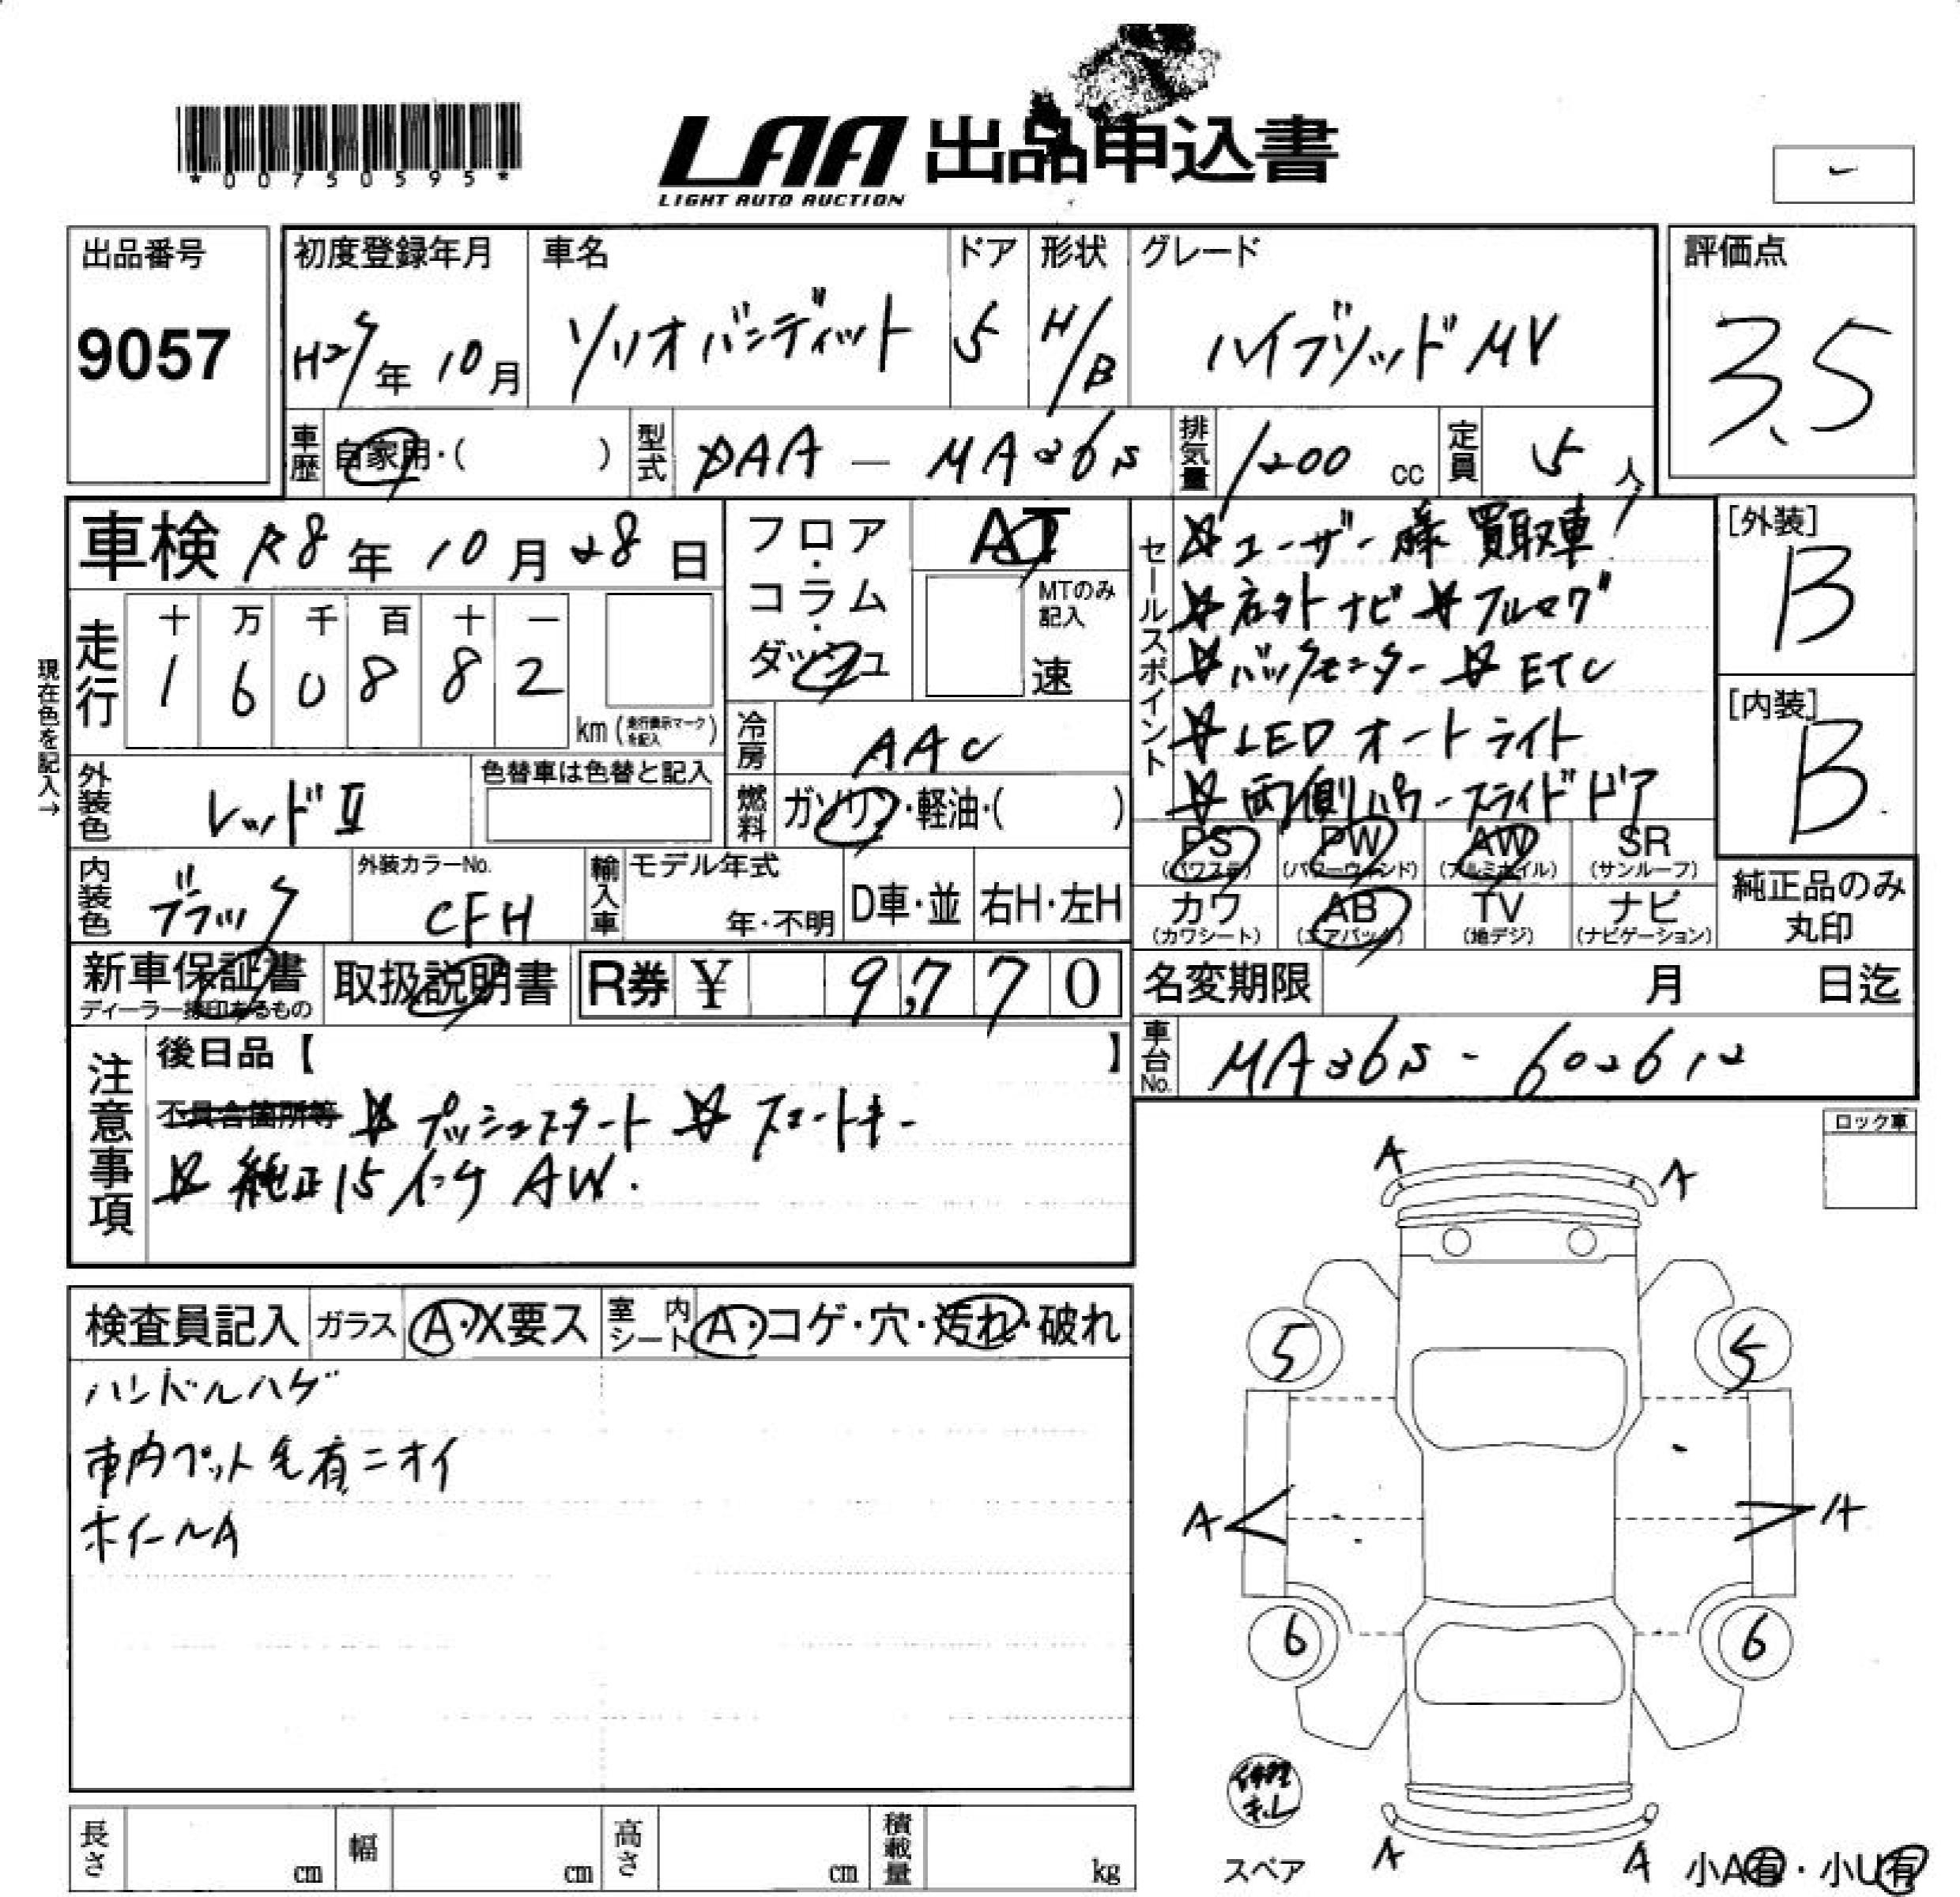 *00750595*
LAA 出品申込書
LIGHT AUTO AUCTION
出品番号
9057
初度登録年月
年 10月
車名
ソリオバンディット
ドア
5
形状
H/B
グレード
ハイブリッド MV
評価点
3.5
車歴 自家用・( )
型式 DAA - MA36S
排気量 1200 cc
定員 5 人
車検 R8年 10月 28日
フロア・コラム・ダッシュ
AT
MTのみ記入
速
セールスポイント
☆ユーザー様 買取車!
☆社外ナビ ☆フルセグ
☆バックセンター ☆ETC
☆LED オートライト
☆両側パワースライドドア
[外装]
B
[内装]
B
現在色を記入→
走行
十 万 千 百 十 一
1 6 0 8 8 2
km (走行表示マークを記入)
冷房 AAC
外装色 レッドⅡ
色替車は色替と記入
燃料 ガソリン・軽油・( )
PS (パワステ)
PW (パワーウィンド)
AW (アルミホイル)
SR (サンルーフ)
カワ (カワシート)
AB (エアバック)
TV (地デジ)
ナビ (ナビゲーション)
純正品のみ丸印
内装色 ブラック
外装カラーNo.
CFH
輸入車
モデル年式
年・不明
D車・並
右H・左H
新車保証書
ディーラー捺印あるもの
取扱説明書
R券 ¥ 9,770
名変期限 月 日迄
車台No. MA36S - 602612
注意事項
後日品【 】
不具合箇所等 ☆プッシュスタート ☆スマートキー
☆純正15インチ AW.
ロック車
検査員記入
ガラス A・X要ス
室内シート A・コゲ・穴・汚れ・破れ
ハンドルハゲ
車内ペット毛有ニオイ
ホイールA
A A
5 5
A A
6 6
A A
修理キット
スペア
小A有・小U有
長さ cm
幅 cm
高さ cm
積載量 kg